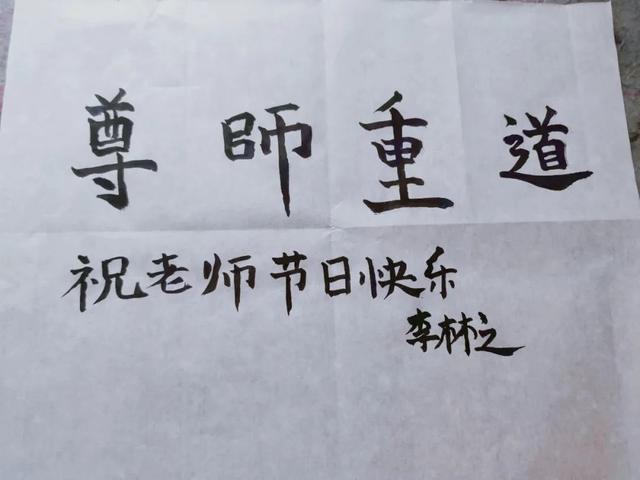 尊師重道
祝老师节日快乐
李林之